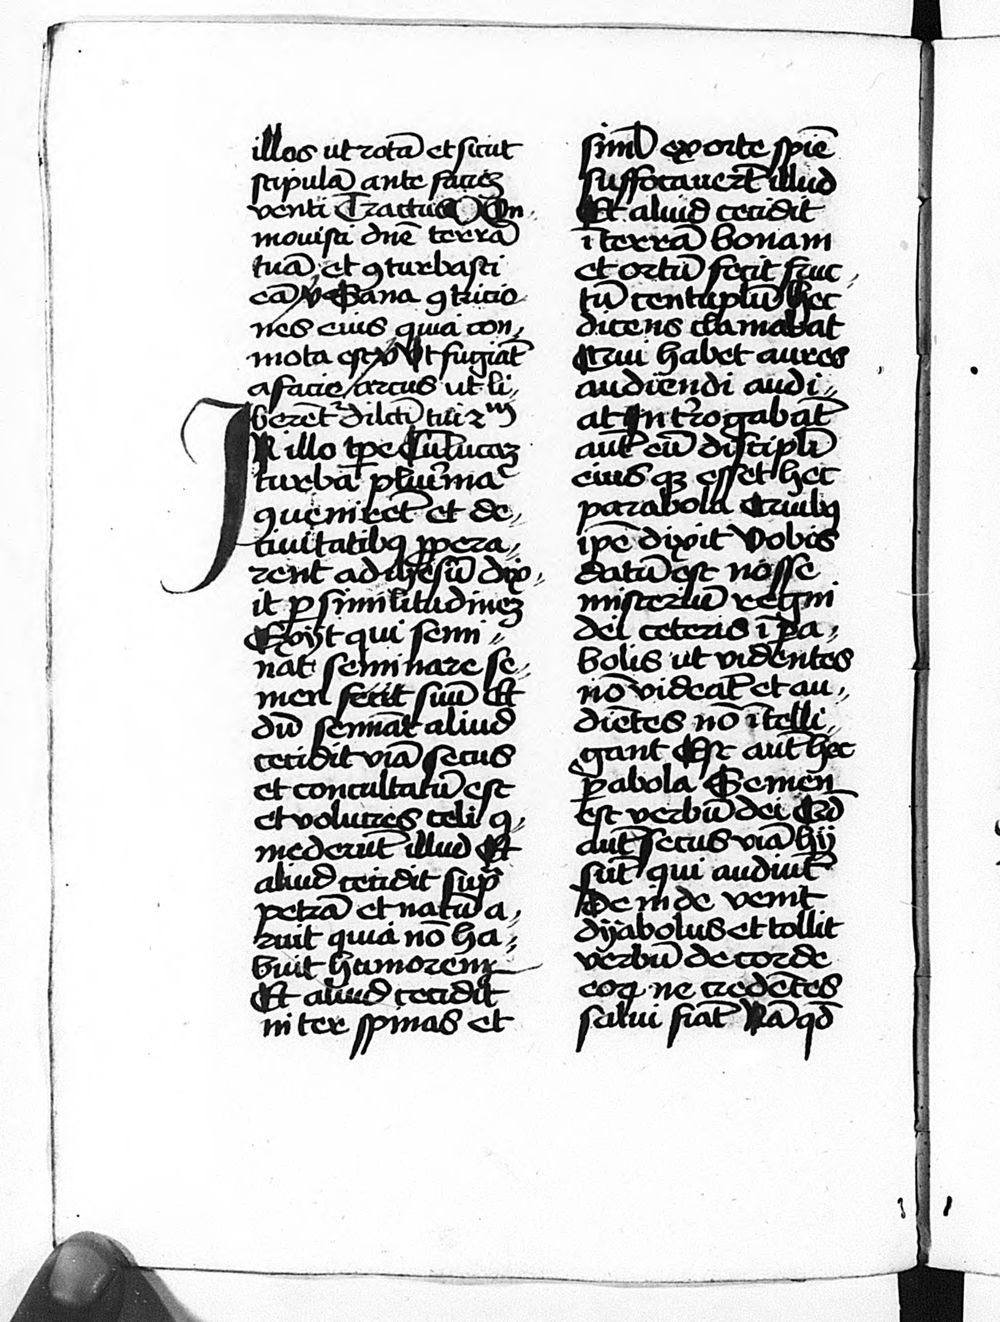 illos ut rotā et sicut
stipulā ante faciē
venti Tractus Com
movisti dn̄e terrā
tuā et ꝯturbasti
eā v Sana ꝯtricio
nes eius quia con
mota est v Ut fugiāt
a facie arcus ut li
berēt dilcti tui
IN illo tp̄e Cū
turba plurima
ꝯvenirēt et de
civitatibꝫ ꝓpera
rent ad ihesū dix
it ꝑ similitudineꝫ
Exijt qui semi
nat seminare se
men suū Et
dū seminat aliud
cecidit viā secus
et conculcatū est
et volucres celi ꝯ
mederūt illud Et
aliud cecidit suꝑ
petrā et natū a
ruit quia nō ha
buit humorem
Et aliud cecidit
inter spinas et
siml̄ exorte spīe
suffocaverūt illud
Et aliud cecidit
ī terrā bonam
et ortū fecit fruc
tū centuplū hec
dicens clamabat
Qui habet aures
audiendi audi
at Introgabāt
autē eū discipli
eius q̄ esset hec
parabola Quibꝫ
ip̄e dixit Vobis
datū est nosse
misteriū regni
dei ceteris ī pa
bolis ut videntes
nō videāt et au
diētes nō ītelli
gant Est autē hec
ꝑabola Semen
est verbū dei Qd̄
autē secus viā hij
sūt qui audiūt
Deinde venit
dyabolus et tollit
verbū de corde
eoꝝ ne credētes
salvi fiāt Nā qd̄